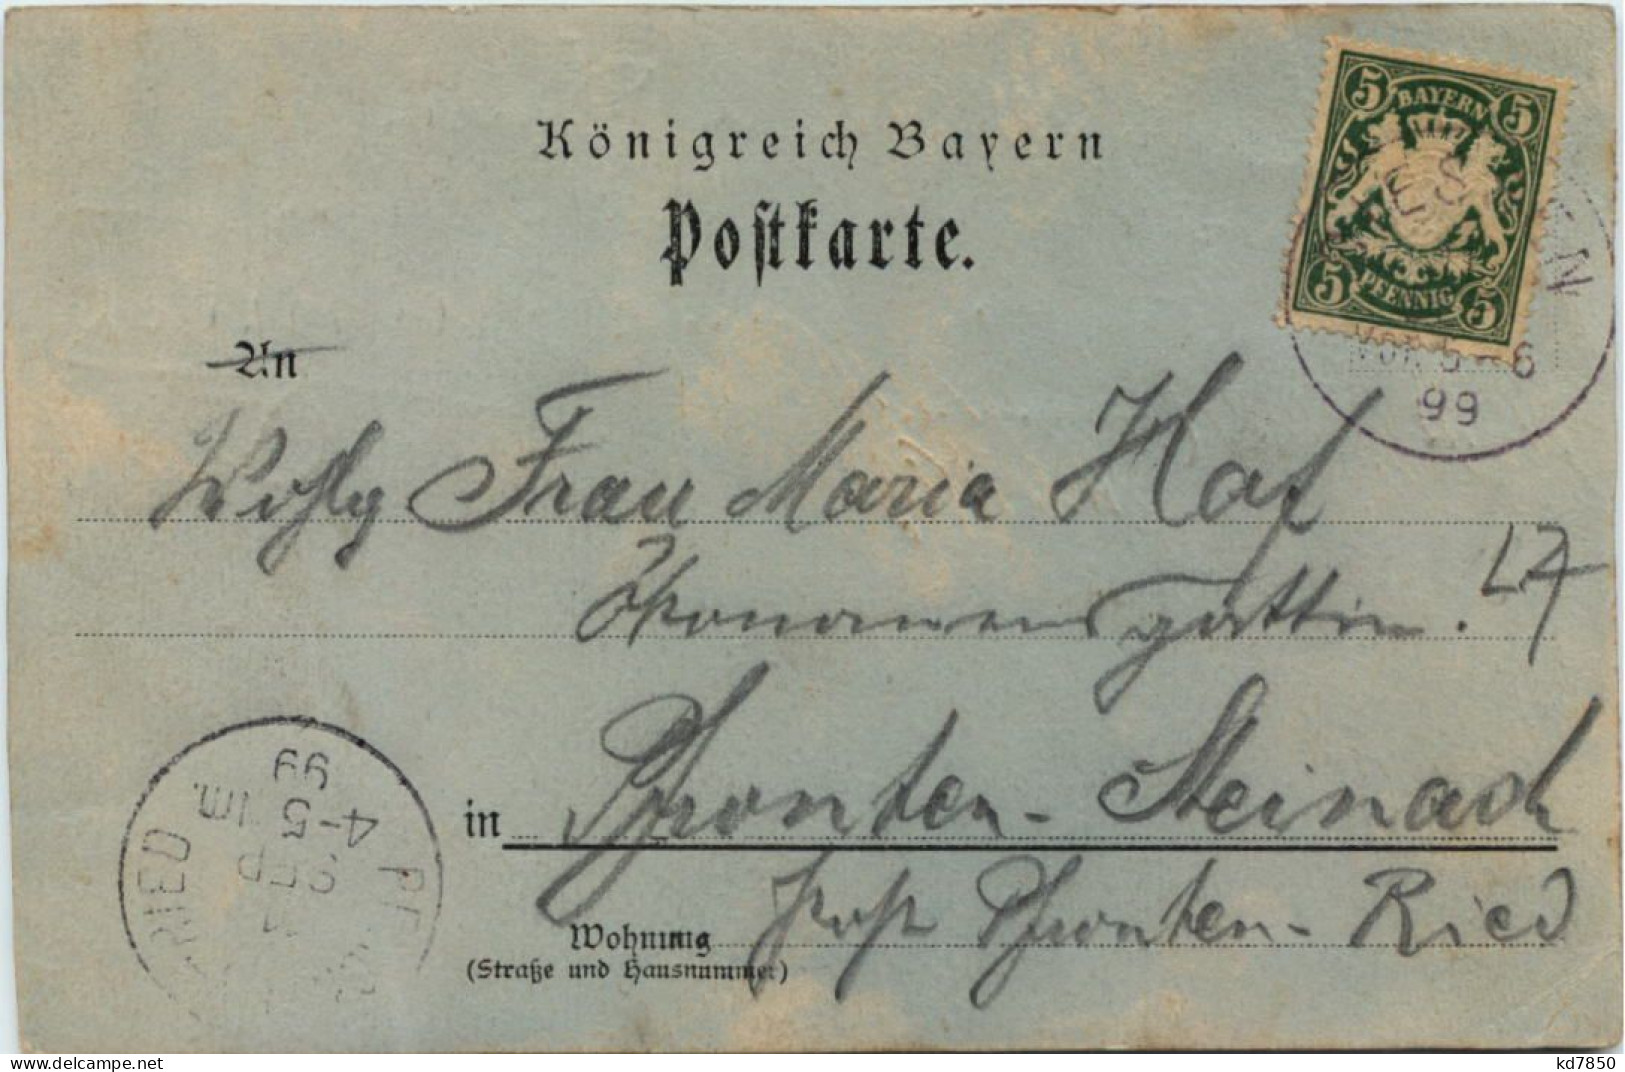 Königreich Bayern
Postkarte.
5 BAYERN 5
5 PFENNIG 5
VOR. 5-6
99
An
Frau Maria Haf
Ökonomensgattin.
17
in Pfronten-Steinach
Post Pfronten-Ried
Wohnung
(Straße und Hausnummer)
RIED
SEP
4-5
99
www.delcampe.net
kd7850